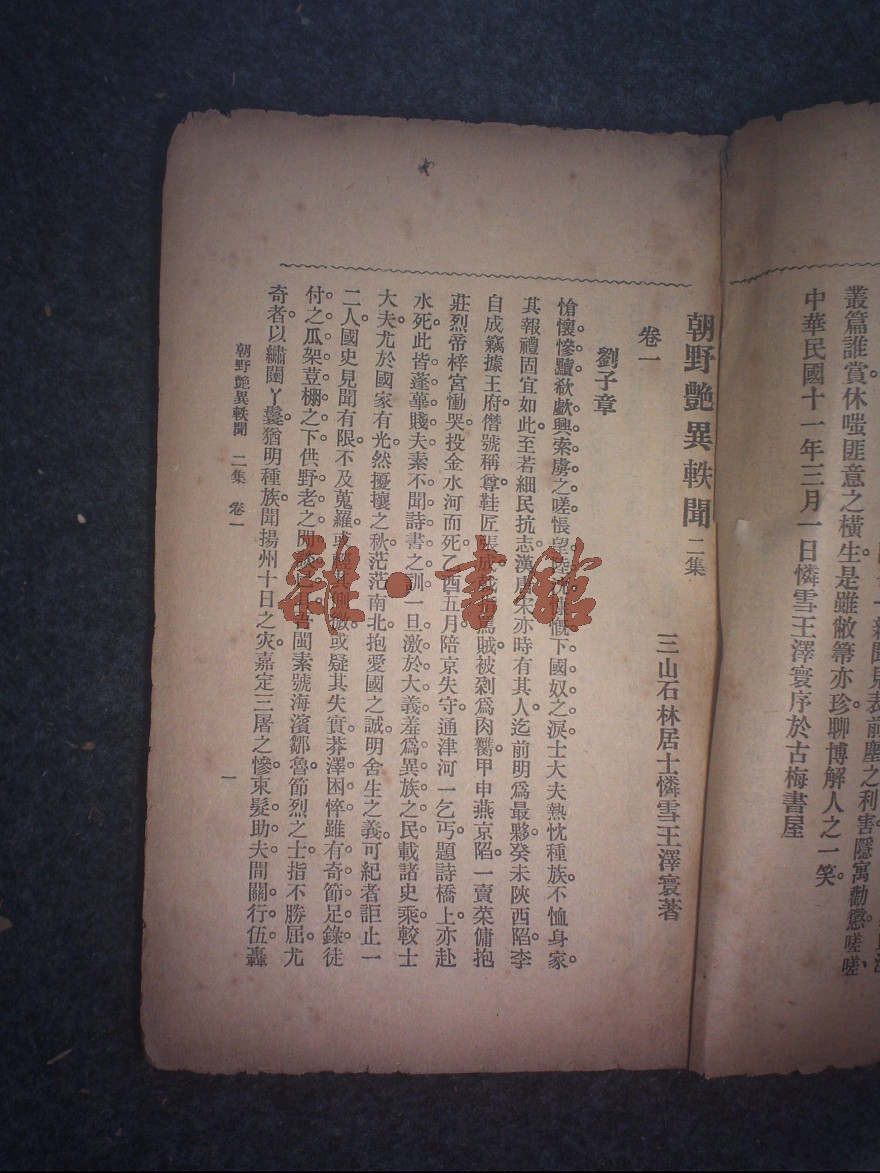 叢篇誰賞休嗤匪意之橫生是雖敝箒亦珍聊博解人之一笑
中華民國十一年三月一日憐雪王澤寰序於古梅書屋
朝野艷異軼聞二集
三山石林居士憐雪王澤寰著
卷一
劉子章
愴懷慘黷欷歔興索虜之嗟悵望陸沈慷慨下國奴之淚士大夫熱忱種族不恤身家。
其報禮固宜如此。至若細民抗志漢唐宋亦時有其人迄前明爲最夥。癸未陝西陷李
自成竊據王府僭號稱尊鞋匠張成戟罵賊被剁爲肉虀甲申燕京陷一賣菜傭抱
莊烈帝梓宮慟哭投金水河而死。乙酉五月陪京失守通津河一乞丐題詩橋上亦赴
水死。此皆蓬蓽賤夫素不聞詩書之訓一旦激於大義羞爲異族之民載諸史乘較士
大夫尤於國家有光。然擾攘之秋茫茫南北抱愛國之誠明舍生之義。可紀者詎止一
二人。國史見聞有限。不及蒐羅。或輕其側微或疑其失實莽澤困悴雖有奇節足錄徒
付之瓜架荳棚之下供野老之閒 吾閩素號海濱鄒魯節烈之士指不勝屈。尤
奇者以繡闥丫鬟猶明種族聞揚州十日之灾嘉定三屠之慘束髮助夫間關行伍轟
朝野艷異軼聞 二集 卷一
一
雜·書館